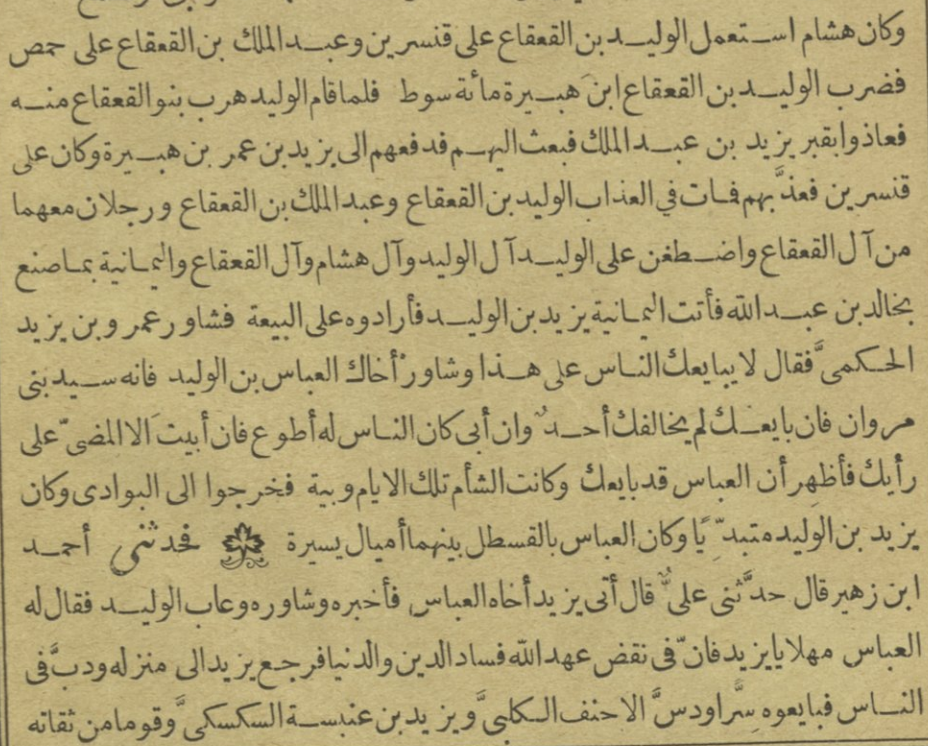 وكان هشام استعمل الوليد بن القعقاع على قنسرين وعبد الملك بن القعقاع على حمص
فضرب الوليد بن القعقاع ابنَ هبيرة مائة سوط فلما قام الوليد هرب بنو القعقاع منه
فعاذوا بقبر يزيد بن عبد الملك فبعث اليهم فدفعهم الى يزيد بن عمر بن هبيرة وكان على
قنسرين فعذّبهم فمات في العذاب الوليد بن القعقاع وعبد الملك بن القعقاع ورجلان معهما
من آل القعقاع واضطغن على الوليد آل الوليد وآل هشام وآل القعقاع واليمانية بما صنع
بخالد بن عبد الله فأتت اليمانية يزيد بن الوليد فأرادوه على البيعة فشاور عمرو بن يزيد
الحكمىَّ فقال لا يبايعك الناس على هذا وشاورْ أخاك العباس بن الوليد فانه سيد بنى
مروان فان بايعك لم يخالفك أحدٌ وان أبى كان الناس له أطوع فان أبيتَ الا المضىّ على
رأيك فأظهِر أن العباس قد بايعك وكانت الشأم تلك الايام وبية فخرجوا الى البوادى وكان
يزيد بن الوليد متبدّيًا وكان العباس بالقسطل بينهما أميال يسيرة فحدثنى أحمد
ابن زهير قال حدَّثنى علىٌّ قال أتى يزيد أخاه العباس فأخبره وشاوره وعاب الوليد فقال له
العباس مهلا يا يزيد فانّ فى نقض عهد الله فساد الدين والدنيا فرجع يزيد الى منزله ودبَّ فى
الناس فبايعوه سرًّا ودسَّ الاحنف الكلبىَّ ويزيد بن عنبسة السكسكىَّ وقوما من ثقاته